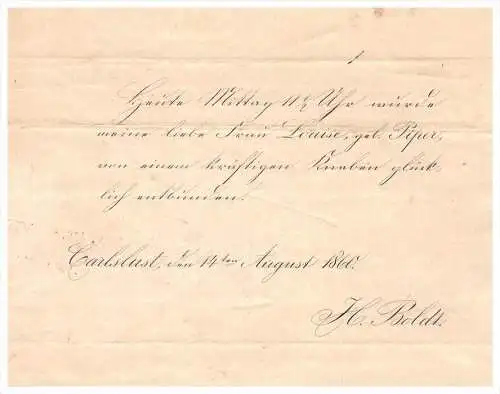 Heute Mittag 11½ Uhr wurde
meine liebe Frau Louise, geb. Piper,
von einem kräftigen Knaben glück-
lich entbunden.
Carlslust, den 14ten August 1860.
H. Boldt.